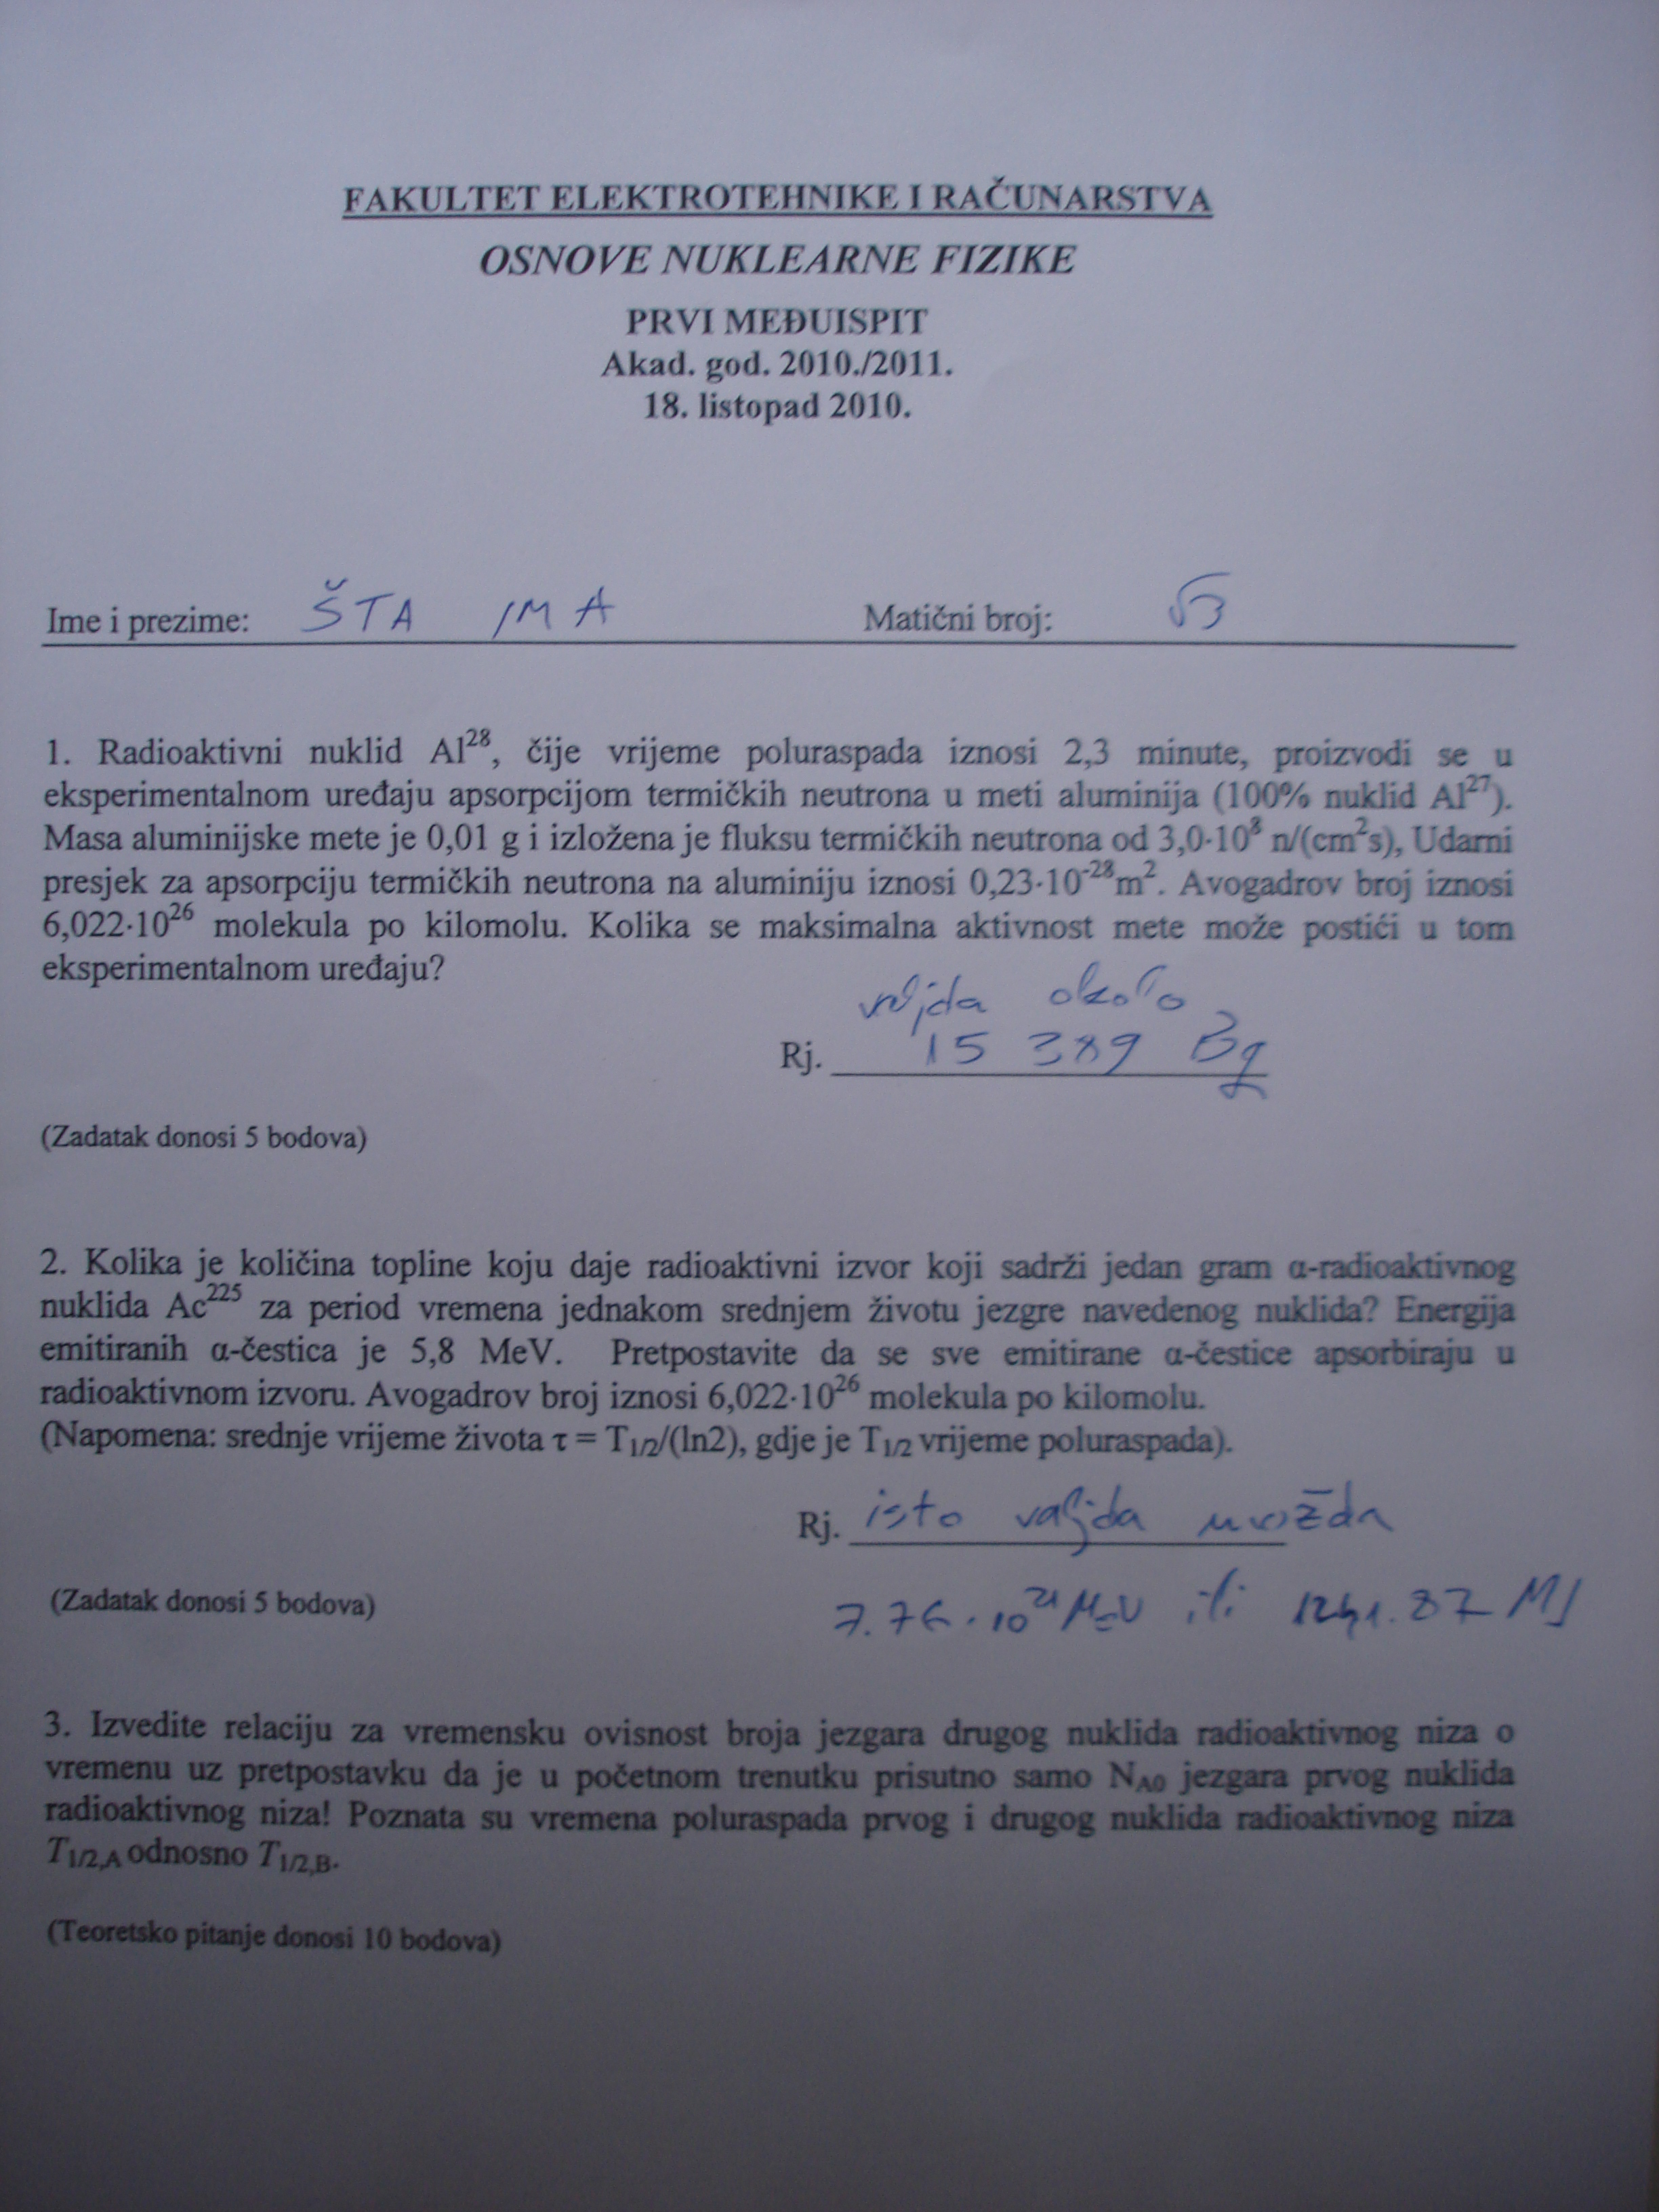 FAKULTET ELEKTROTEHNIKE I RAČUNARSTVA
OSNOVE NUKLEARNE FIZIKE
PRVI MEĐUISPIT
Akad. god. 2010./2011.
18. listopad 2010.
Ime i prezime: ŠTA IMA Matični broj: √3
1. Radioaktivni nuklid Al²⁸, čije vrijeme poluraspada iznosi 2,3 minute, proizvodi se u
eksperimentalnom uređaju apsorpcijom termičkih neutrona u meti aluminija (100% nuklid Al²⁷).
Masa aluminijske mete je 0,01 g i izložena je fluksu termičkih neutrona od 3,0·10⁸ n/(cm²s), Udarni
presjek za apsorpciju termičkih neutrona na aluminiju iznosi 0,23·10⁻²⁸m². Avogadrov broj iznosi
6,022·10²⁶ molekula po kilomolu. Kolika se maksimalna aktivnost mete može postići u tom
eksperimentalnom uređaju?
valjda okolo
Rj. 15 389 Bq
(Zadatak donosi 5 bodova)
2. Kolika je količina topline koju daje radioaktivni izvor koji sadrži jedan gram α-radioaktivnog
nuklida Ac²²⁵ za period vremena jednakom srednjem životu jezgre navedenog nuklida? Energija
emitiranih α-čestica je 5,8 MeV. Pretpostavite da se sve emitirane α-čestice apsorbiraju u
radioaktivnom izvoru. Avogadrov broj iznosi 6,022·10²⁶ molekula po kilomolu.
(Napomena: srednje vrijeme života τ = T₁/₂/(ln2), gdje je T₁/₂ vrijeme poluraspada).
Rj. isto valjda možda
(Zadatak donosi 5 bodova)
7.76 · 10²¹ MeV ili 1241.87 MJ
3. Izvedite relaciju za vremensku ovisnost broja jezgara drugog nuklida radioaktivnog niza o
vremenu uz pretpostavku da je u početnom trenutku prisutno samo N_A0 jezgara prvog nuklida
radioaktivnog niza! Poznata su vremena poluraspada prvog i drugog nuklida radioaktivnog niza
T₁/₂,A odnosno T₁/₂,B.
(Teoretsko pitanje donosi 10 bodova)